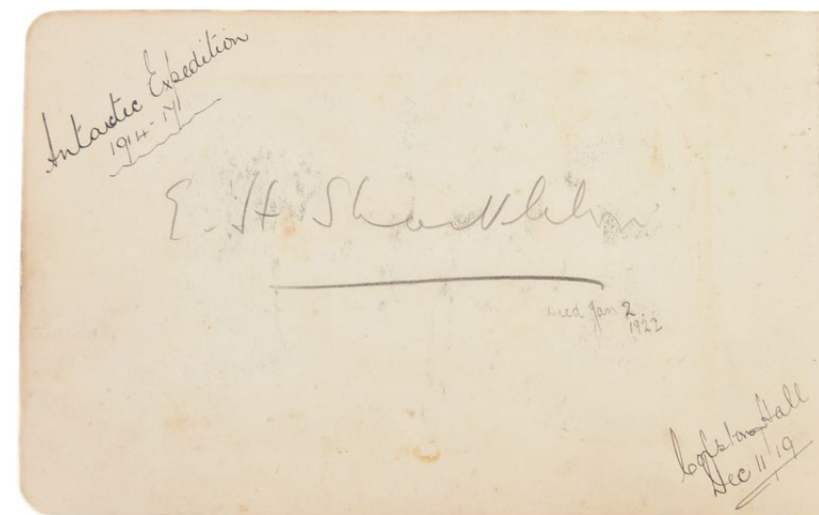 Antarctic Expedition
1914-17
E. H. Shackleton
Died Jan 2
1922
Colston Hall
Dec 11/19